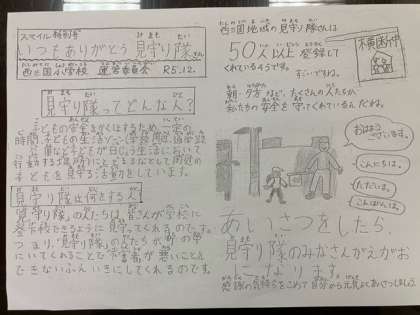 スマイル特別号
いつもありがとう 見守り隊さん
西三国小学校 運営委員会 R5.12.
見守り隊ってどんな人?
子どもの安全をかくほするため、一定の
子どもを見守る活動をしています。
見守り隊は何をする人?
見守り隊の人たちは、皆さんが学校に
登下校できるように見守ってくれるのです。
つまり、見守り隊の人たちが町の中
にいてくれることで不審者が悪いことを
できないふんいきにしてくれるのです。
西三国地域の見守り隊さんは
50人以上登録して
くれているそうです。
すごいですね。
朝・夕方など、たくさんの人たちが
私たちの安全を守ってくれているんだよね。
横断中
おはよう
ございます。
こんにちは。
ただいま。
こんばんは。
あいさつをしたら、
見守り隊のみなさんがえがお
になります。
感謝の気持ちをこめて自分から元気よくあいさつしましょう。